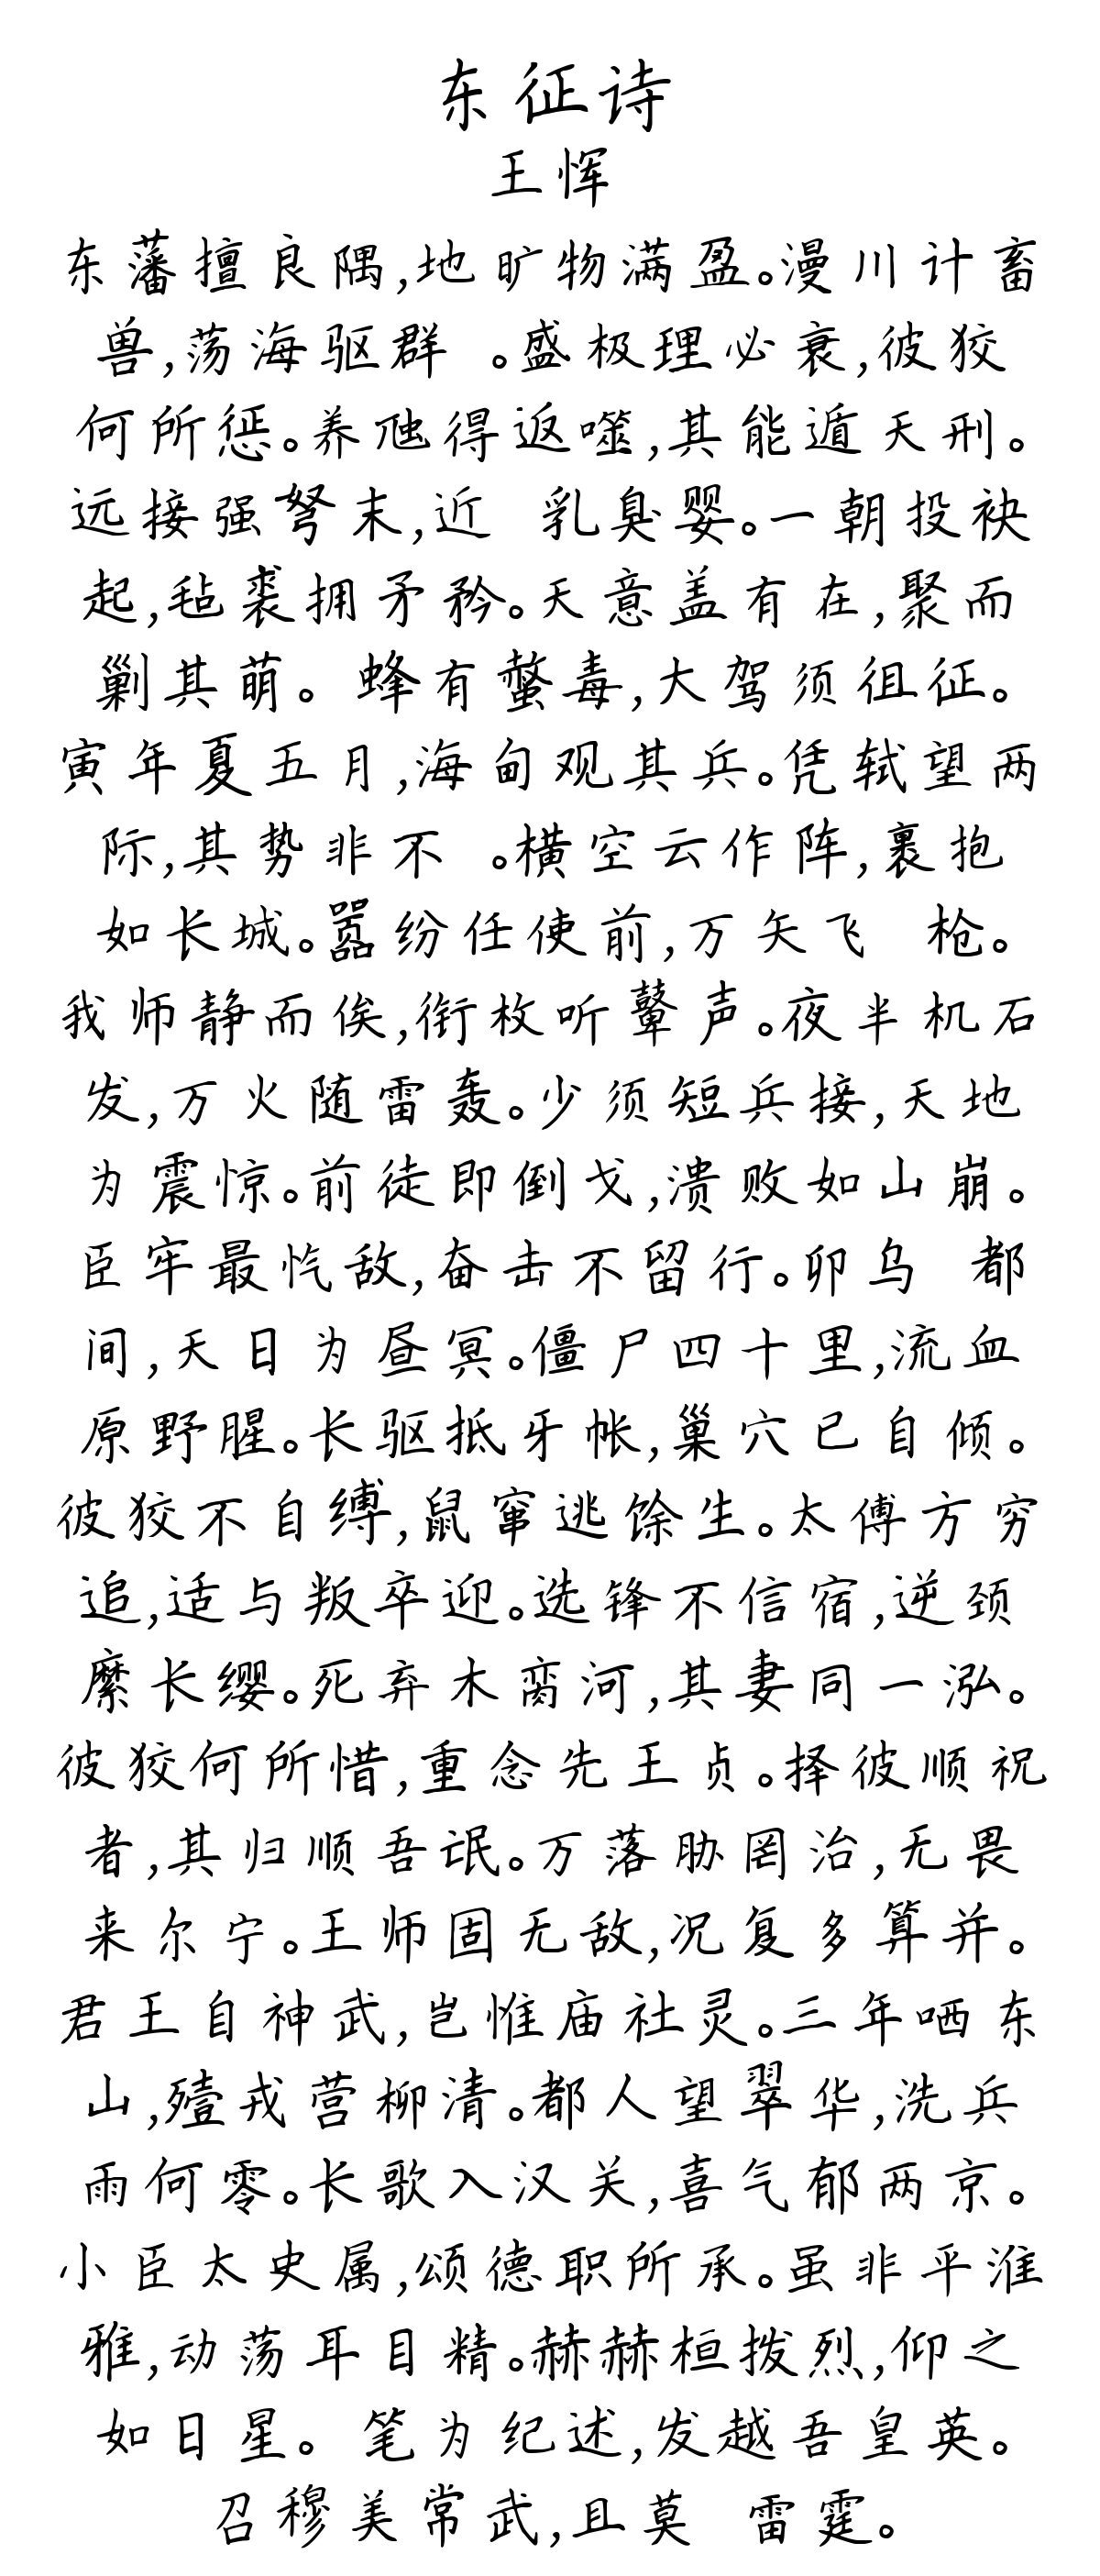 东征诗
王恽
东藩擅良隅,地旷物满盈。漫川计畜
兽,荡海驱群 。盛极理必衰,彼狡
何所惩。养虺得返噬,其能遁天刑。
远接强弩末,近 乳臭婴。一朝投袂
起,毡裘拥矛矜。天意盖有在,聚而
剿其萌。 蜂有螫毒,大驾须徂征。
寅年夏五月,海甸观其兵。凭轼望两
际,其势非不 。横空云作阵,裹抱
如长城。嚣纷任使前,万矢飞 枪。
我师静而俟,衔枚听鼙声。夜半机石
发,万火随雷轰。少须短兵接,天地
为震惊。前徒即倒戈,溃败如山崩。
臣牢最忾敌,奋击不留行。卯乌 都
间,天日为昼冥。僵尸四十里,流血
原野腥。长驱抵牙帐,巢穴已自倾。
彼狡不自缚,鼠窜逃馀生。太傅方穷
追,适与叛卒迎。选锋不信宿,逆颈
縻长缨。死弃木脔河,其妻同一泓。
彼狡何所惜,重念先王贞。择彼顺祝
者,其归顺吾氓。万落胁罔治,无畏
来尔宁。王师固无敌,况复多算并。
君王自神武,岂惟庙社灵。三年哂东
山,殪戎营柳清。都人望翠华,洗兵
雨何零。长歌入汉关,喜气郁两京。
小臣太史属,颂德职所承。虽非平淮
雅,动荡耳目精。赫赫桓拨烈,仰之
如日星。 笔为纪述,发越吾皇英。
召穆美常武,且莫 雷霆。